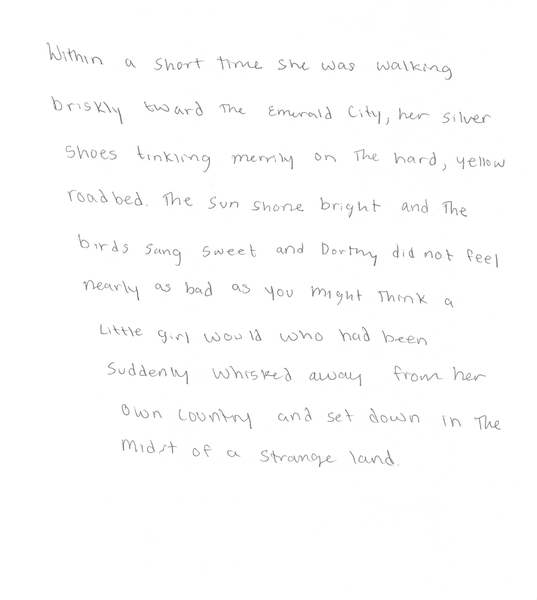 Within a short time she was walking
briskly tward The Emerald City, her silver
Shoes tinkling merrily on The hard, yellow
roadbed. The sun shone bright and The
birds sang sweet and Dorthy did not feel
nearly as bad as you might Think a
Little girl would who had been
Suddenly whisked away from her
own country and set down in The
midst of a strange land.